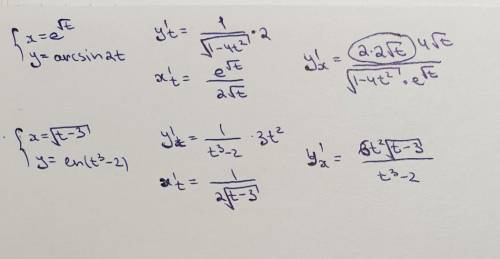 { x = e^√t
y = arcsin2t
y't = 1/√(1-4t²) · 2
x't = e^√t/2√t
y'x = 2·2√t 4√t/√(1-4t²) · e^√t
{ x = √(t-3)
y = ln(t³-2)
y't = 1/(t³-2) · 3t²
x't = 1/2√(t-3)
y'x = 6t²√(t-3)/(t³-2)